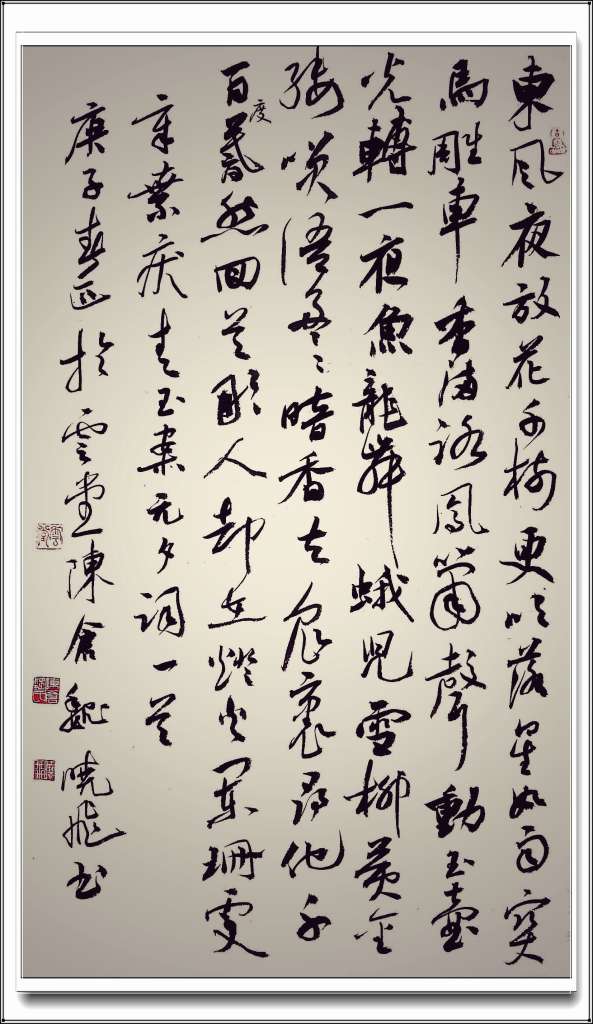 東風夜放花千樹更吹落星如雨寶
馬雕車香滿路鳳簫聲動玉壺
光轉一夜魚龍舞蛾兒雪柳黃金
縷笑語盈々暗香去眾裏尋他千
百度驀然回首那人却在燈火闌珊處
辛棄疾青玉案元夕詞一首
庚子春正於雲堂陳倉魏曉飛書